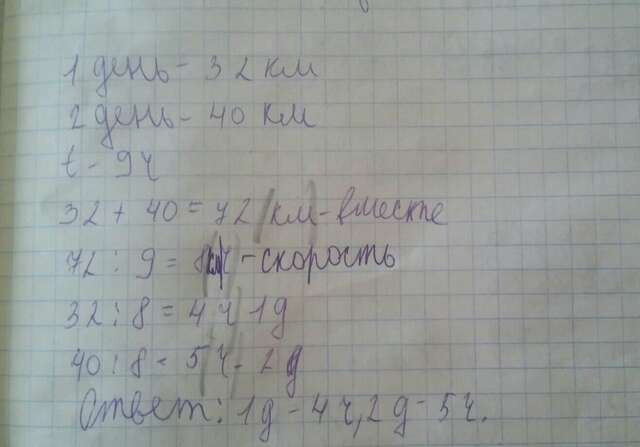 1 день - 32 км
2 день - 40 км
t - 9 ч
32 + 40 = 72 км - вместе
72 : 9 = 8 - скорость
32 : 8 = 4 ч 1 д
40 : 8 - 5 ч - 2 д
Ответ: 1 д - 4 ч, 2 д - 5 ч.